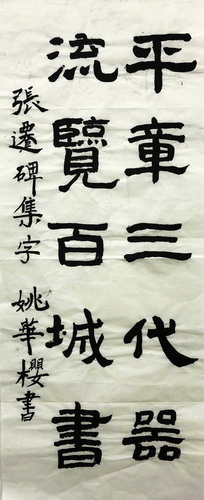 平章三代器
流覽百城書
張遷碑集字 姚華櫻書